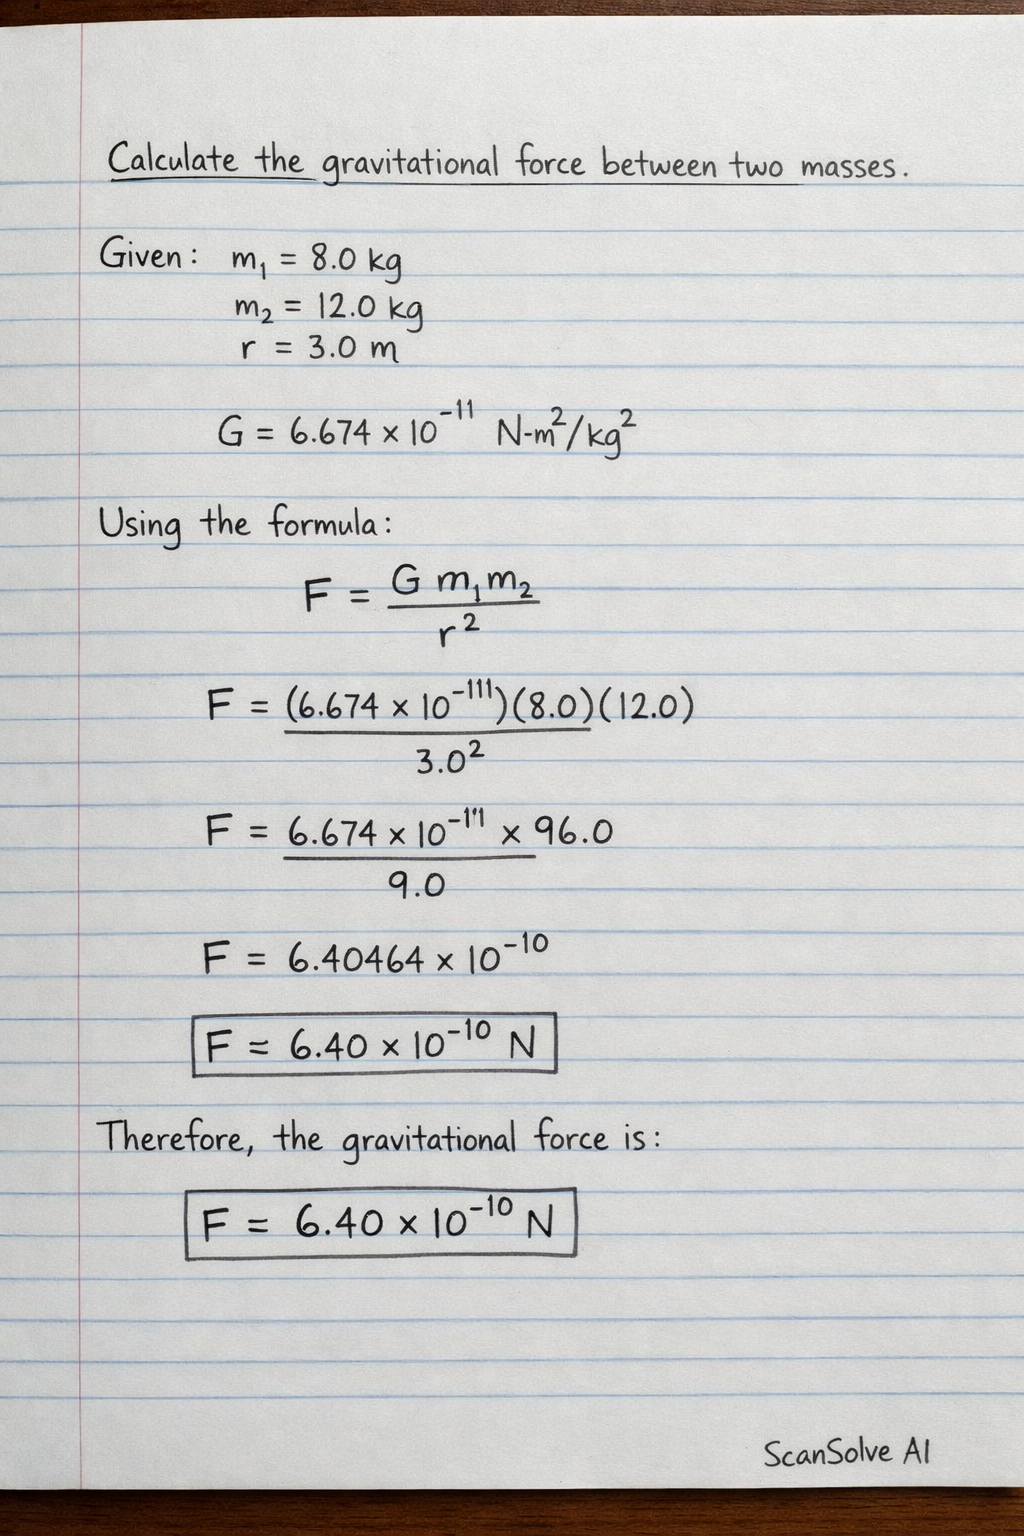 Calculate the gravitational force between two masses.
Given: m₁ = 8.0 kg
m₂ = 12.0 kg
r = 3.0 m
G = 6.674 × 10⁻¹¹ N-m²/kg²
Using the formula:
F = G m₁m₂ / r²
F = (6.674 × 10⁻¹¹¹)(8.0)(12.0) / 3.0²
F = 6.674 × 10⁻¹'¹ × 96.0 / 9.0
F = 6.40464 × 10⁻¹⁰
F = 6.40 × 10⁻¹⁰ N
Therefore, the gravitational force is:
F = 6.40 × 10⁻¹⁰ N
ScanSolve AI